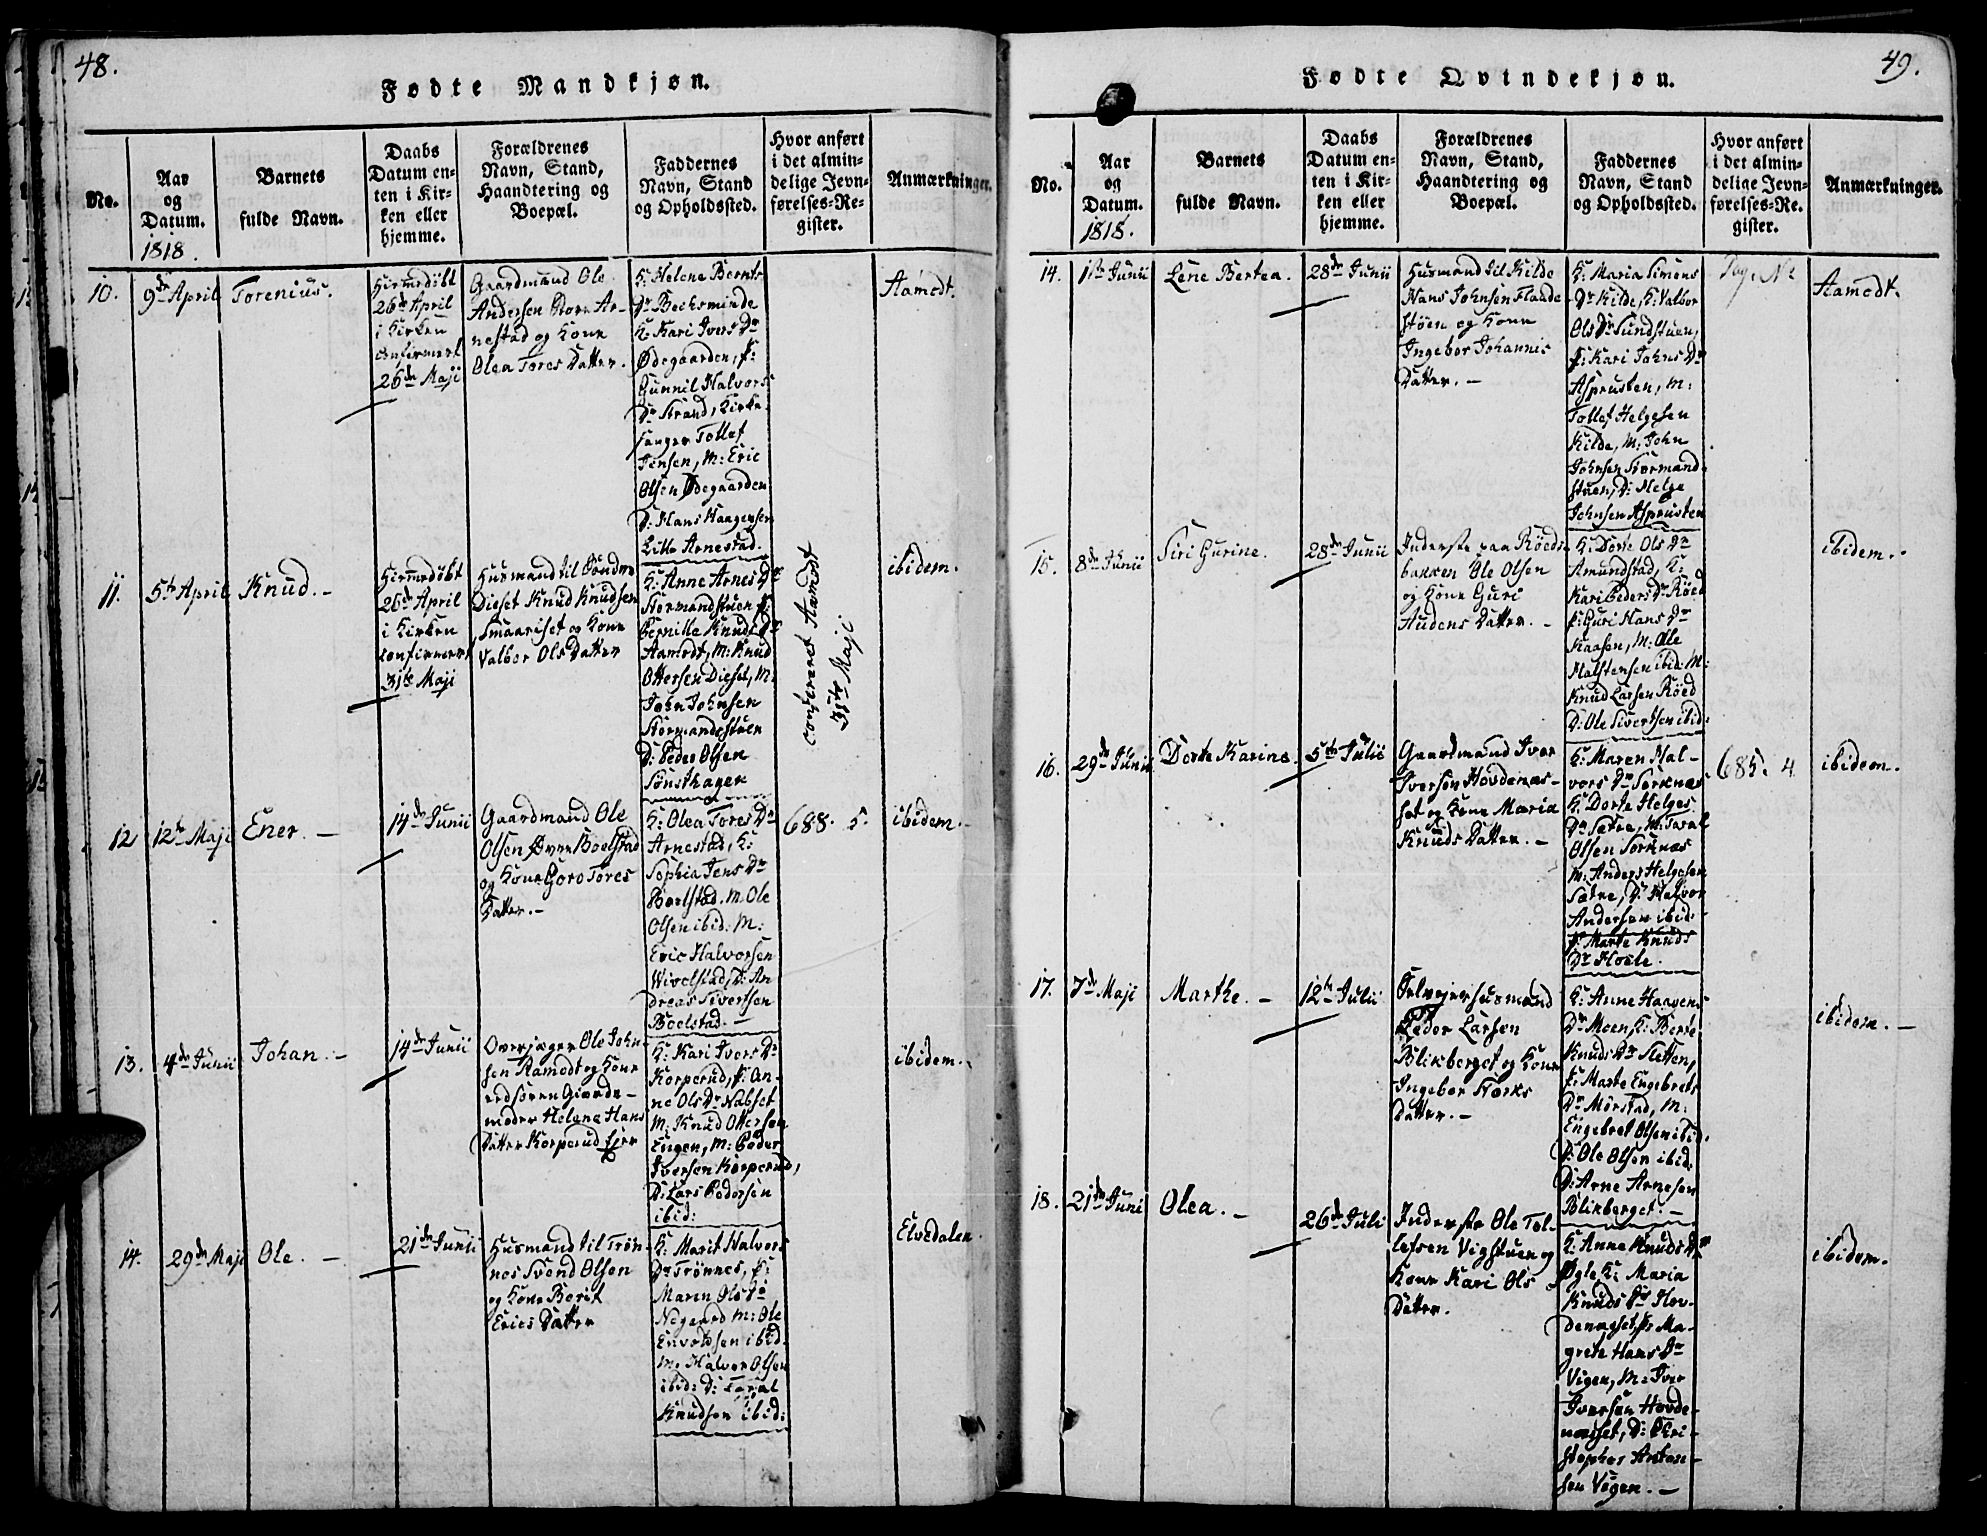 48.
Fødte Mandkjøn.
No.
Aar
og
Datum.
1818.
Barnets
fulde Navn.
Daabs
Datum en-
ten i Kir-
ken eller
hjemme.
Forældrenes
Navn, Stand,
Haandtering og
Boepæl.
Faddernes
Navn, Stand
og Opholdssted.
Hvor anført
i det almin-
delige Jevn-
førelses-Re-
gister.
Anmærkninger.
10.
9de April
Torenius.
Hiemedöbt
26de April
i Kirken
confirmert
26de Maji
Gaardmand Ole
Andersen Store Ar-
nestad og Kone
Olea Tores Datter.
K: Helene Bernts
Dr Beckeminde
K: Kari Ivers Dr
Ødegaarden, P:
Gunnil Halvors
Dr Strand, Kirke-
sanger Tollef
Jensen, M: Eric
Olsen Ødegaarden
D: Hans Haagensen
Lille Arnestad.
Aamodt.
11.
5te April
Knud. –
Hiemedöbt
26de April
i Kirken
confirmert
31te Maji
Husmand til Söndre
Dieset Knud Knudsen
Smaariset og Kone
Valbor Ols Datter
K: Anne Arnes Dr
Stormandstuen P:
Pernille Knuds Dr
Aamodt, M: Knud
Ottersen Dieset, M:
John Johnsen
Stormandstuen
D: Peder Olsen
Sönsthagen
confereret Aamodt
31te Maji
ibidem.
12
12te Maji
Ener. –
14de Junii
Gaardmand Ole
Olsen Øvre Boelstad
og Kone Goro Tores
Datter. –
K: Olea Tores Dr
Arnestad, K:
Sophia Jens Dr
Boelstad. M. Ole
Olsen ibid: M:
Eric Halvorsen
Wivelstad, D: An
dreas Sivertsen
Boelstad. –
688. 5.
ibidem.
13.
4de Junii
Johan. –
14de Junii
Overjæger Ole John-
sen Aamodt og Kone
Giorde-
moder Helene Hans
Datter Korperud Eier
K: Kari Ivers Dr
Korperud, P: An-
ne Ols Dr Nabset
M: Knud Ottersen
Engen, M: Peder
Iversen Korperud,
D: Lars Pedersen
ibid:
ibidem.
14.
29de Maji
Ole. –
21de Junii
Husmand til Trön-
nes Svend Olsen
og Kone Berit
Erics Datter
K: Marit Halvors
Dr Trönnes, P:
Maren Ols Dr
Negaard M: Ole
Envoldsen ibid.
M: Halvor Olsen
ibid: D: Taral
Knudsen ibid:
Elvedalen.
49.
Fødte Qvindekjøn.
No.
Aar
og
Datum.
1818.
Barnets
fulde Navn.
Daabs
Datum en-
ten i Kir-
ken eller
hjemme.
Forældrenes
Navn, Stand,
Haandtering og
Boepæl.
Faddernes
Navn, Stand
og Opholdssted.
Hvor anført
i det almin-
delige Jevn-
førelses-Re-
gister.
Anmærkninger.
14.
1ste Junii
Lene Bertea.
28de Junii
Husmand til Kilde
Hans Johnsen Flaade-
stöen og Kone
Ingebor Johannis
Datter. –
K: Maria Simens
Dr Kilde, K: Valbor
Ols Dr Sundstuen,
P: Kari Johns Dr
Asprusten, M:
Tollef Helgesen
Kilde, M: John
Johnsen Stormand-
stuen, D: Helge
Johnsen Asprusten
Pag. No
Aamodt.
15.
8de Junii
Siri Gurine.
28de Junii
Inderste paa Röeds-
bakken Ole Olsen
og Kone Guri
Audens Datter. –
K: Dorte Ols Dr
Amundstad, K:
Kari Peders Dr Röed
P: Guri Hans Dr
Kaasen, M: Ole
Halstensen ibid: M:
Knud Larsen Röed
D: Ole Sivertsen ibid:
ibidem.
16.
29de Junii
Dorte Karine.
5te Julii
Gaardmand Iver
Iversen Hovdenæs-
set og Kone Maria
Knuds Datter. –
K: Maren Hal-
vors Dr Sorknæs
K: Dorte Helges
Dr Sætre, M: Taral
Olsen Sorknæs
M: Anders Helgesen
Sætre, D: Halvor
Andersen ibid:
P: Marte Knuds
Dr Hoele.
685. 4
ibidem.
17.
7de Maji
Marthe. –
12te Julii
Selvejerhusmand
Peder Larsen
Blikberget og Kone
Ingebor Störks
Datter. –
K: Anne Haagens
Dr Moen K: Berte
Knuds Dr Sletten,
P: Marte Engebrets
Dr Mörstad, M:
Engebret Olsen ibid:
D: Ole Olsen ibid:
D: Arne Arnesen
Blikberget. –
ibidem. –
18.
21de Juni
Olea. –
26de Juli
Inderste Ole Tol-
lefsen Vigstuen og
Kone Kari Ols
Datter.
K: Anne Knuds Dr
Øgle K: Maria
Knuds Dr Hov-
denæset, P: Ma-
grete Hans Dr
Vigen, M: Iver
Iversen Hovde-
næset, D: Chri-
stopher Anton-
sen Vigen. –
ibidem.